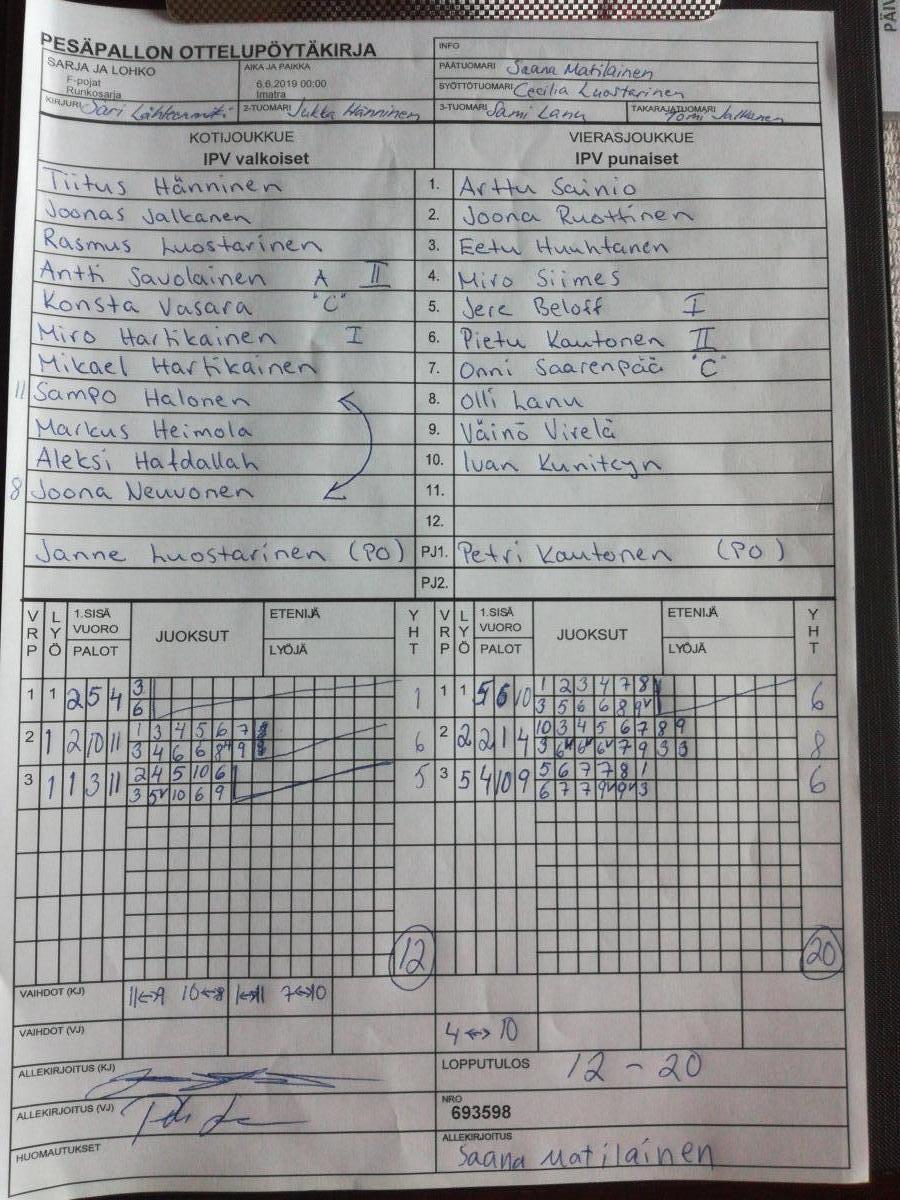 PESÄPALLON OTTELUPÖYTÄKIRJA
INFO
SARJA JA LOHKO
F-pojat
Runkosarja
AIKA JA PAIKKA
6.6.2019 00:00
Imatra
PÄÄTUOMARI Saana Matilainen
SYÖTTÖTUOMARI Cecilia Luostarinen
KIRJURI Sari
2-TUOMARI Jukka Hänninen
3-TUOMARI Sami Lanu
TAKARAJATUOMARI Tomi Jalkanen
KOTIJOUKKUE
IPV valkoiset
VIERASJOUKKUE
IPV punaiset
Tiitus Hänninen 1. Arttu Sainio
Joonas Jalkanen 2. Joona Ruottinen
Rasmus Luostarinen 3. Eetu Huuhtanen
Antti Savolainen A II 4. Miro Siimes
Konsta Vasara "C" 5. Jere Beloff I
Miro Hartikainen I 6. Pietu Kautonen II
Mikael Hartikainen 7. Onni Saarenpää "C"
11 Sampo Halonen 8. Olli Lanu
Markus Heimola 9. Väinö Virelä
Aleksi Hafdallah 10. Ivan Kunitcyn
8 Joona Neuvonen 11.
12.
Janne Luostarinen (PO) PJ1. Petri Kautonen (PO)
PJ2.
VRP LYÖ 1.SISÄ VUORO PALOT JUOKSUT ETENIJÄ LYÖJÄ YHT
VRP LYÖ 1.SISÄ VUORO PALOT JUOKSUT ETENIJÄ LYÖJÄ YHT
1 1 2 5 4 3 1
6
1 1 5 6 10 1 2 3 4 7 8 6
3 5 6 6 8 9
2 1 2 10 11 1 3 4 5 6 7 6
3 4 6 6 8 9
2 2 2 1 4 10 3 4 5 6 7 8 9 8
3 6 6 6 7 9 3 3
3 1 1 3 11 2 4 5 10 6 5
3 5 10 6 9
3 5 4 10 9 5 6 7 7 8 1 6
6 7 7 9 9 3
12
20
VAIHDOT (KJ) 11↔9 10↔8 1↔11 7↔10
VAIHDOT (VJ) 4↔10
ALLEKIRJOITUS (KJ)
LOPPUTULOS 12 - 20
ALLEKIRJOITUS (VJ)
NRO
693598
HUOMAUTUKSET
ALLEKIRJOITUS
Saana Matilainen